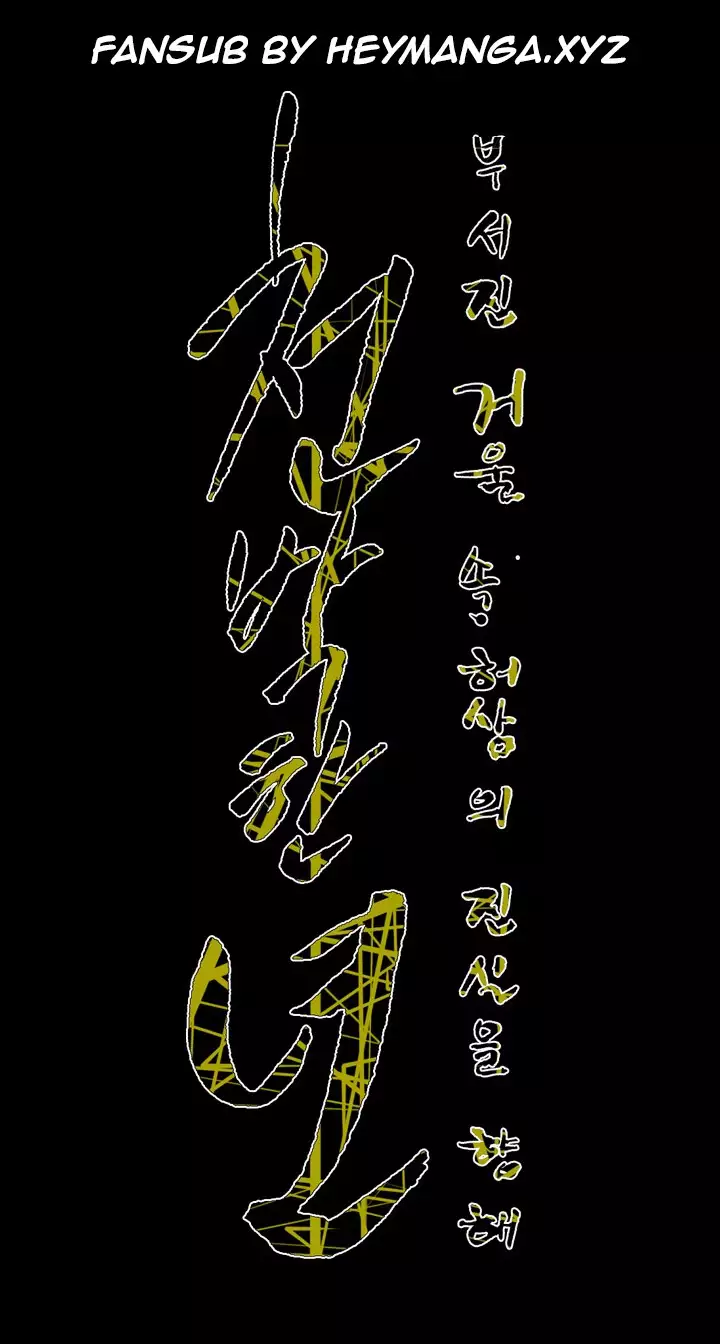 FANSUB BY HEYMANGA.XYZ
천박한 년
부서진 거울 속, 허상의 진실을 향해